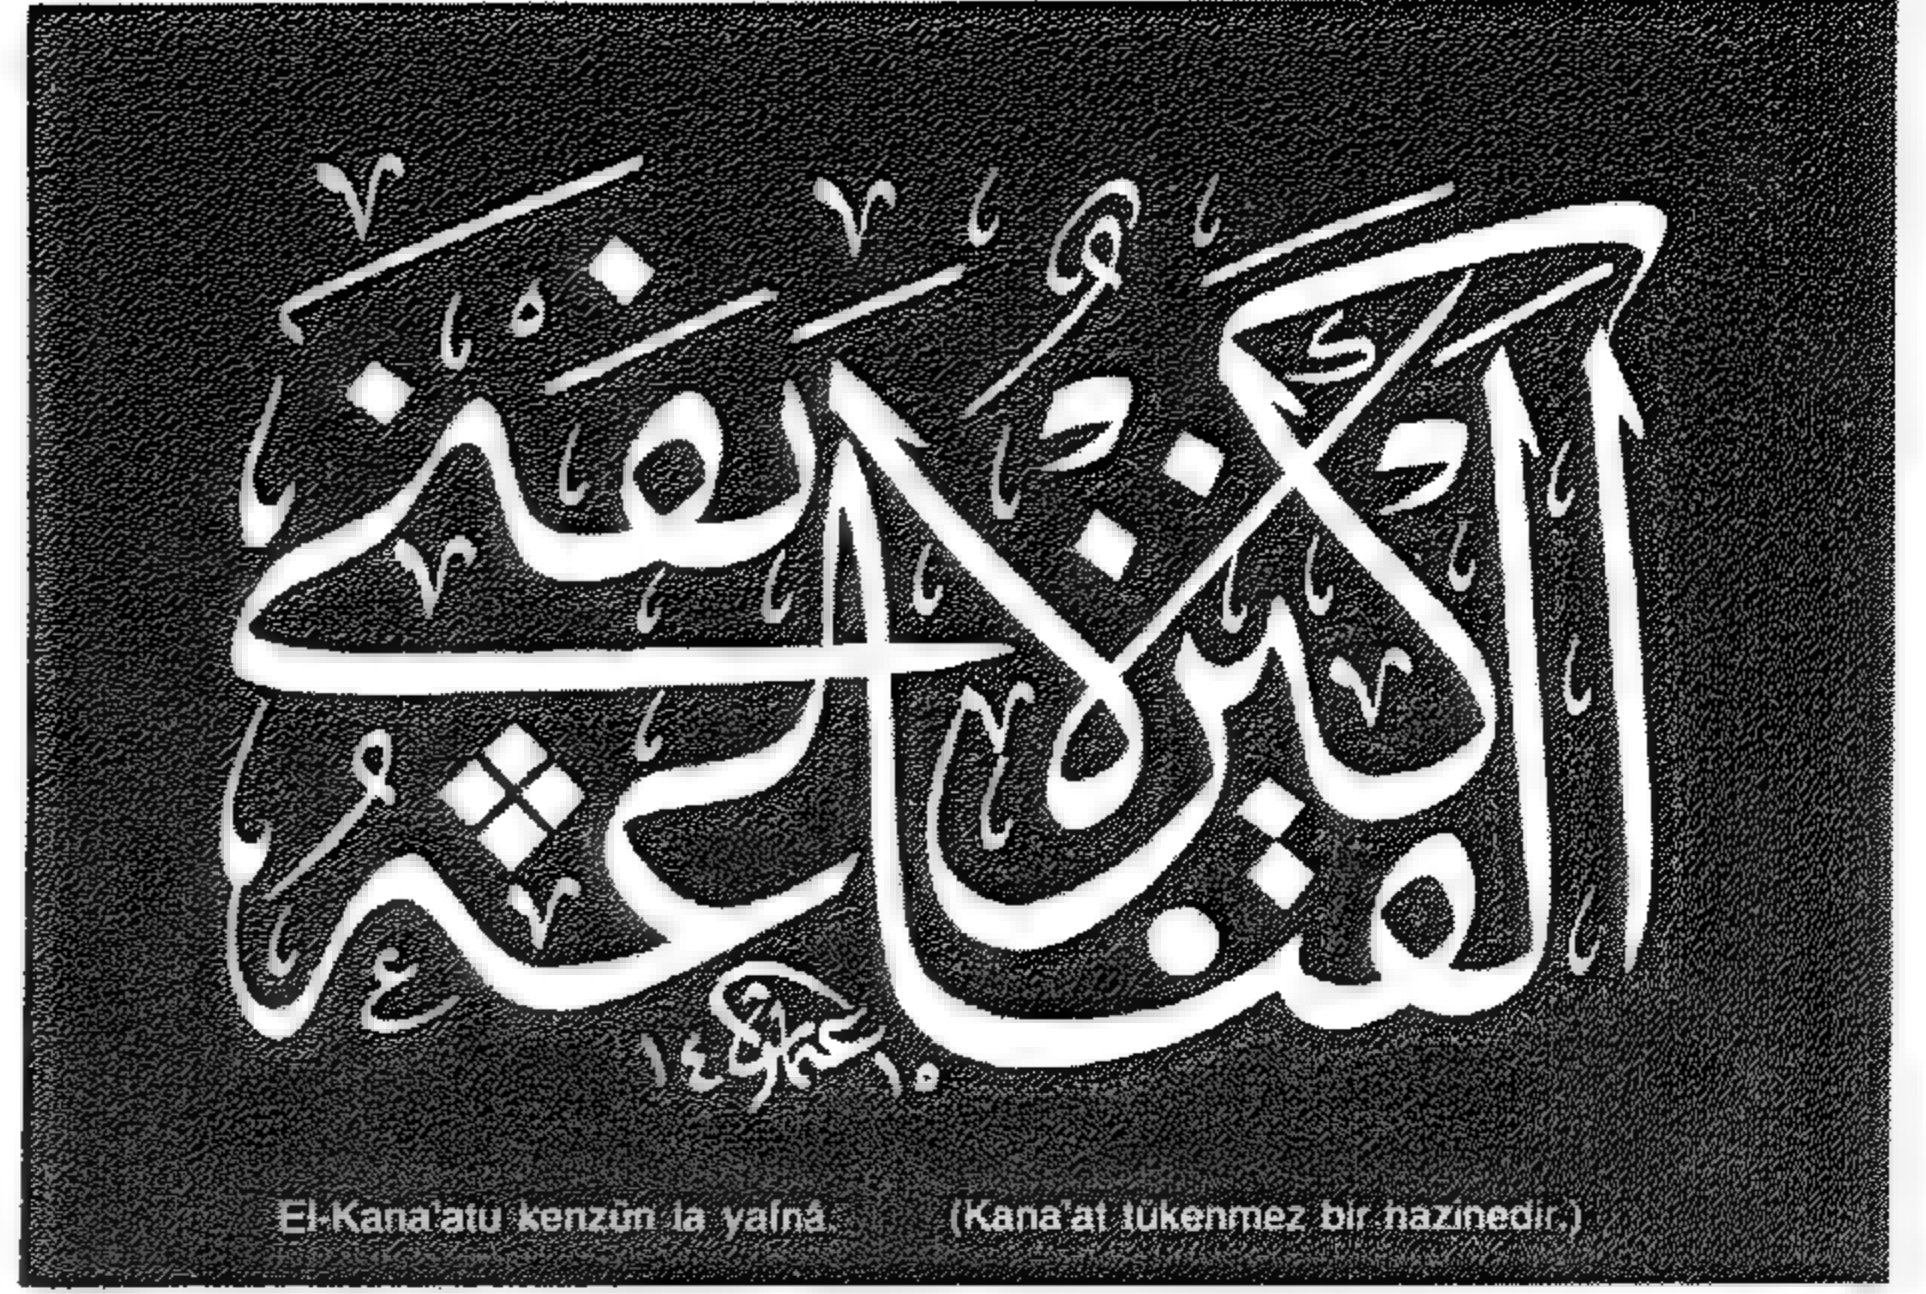 القناعة كنز لا يفنى
El-Kana'atu kenzün la yafnâ.
(Kana'at tükenmez bir hazinedir.)